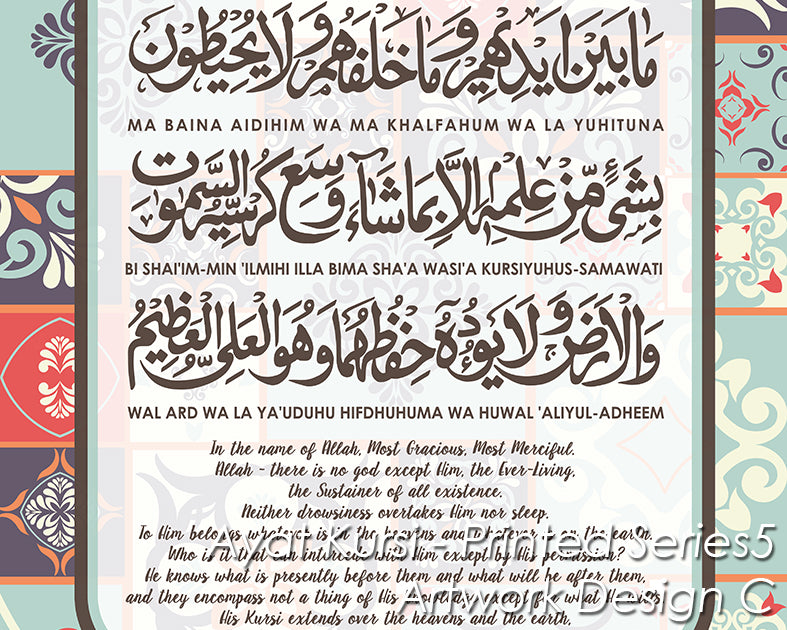 مَا بَيْنَ اَيْدِيْهِمْ وَمَا خَلْفَهُمْ وَلَا يُحِيْطُوْنَ
MA BAINA AIDIHIM WA MA KHALFAHUM WA LA YUHITUNA
بِشَىْءٍ مِّنْ عِلْمِهٖ اِلَّا بِمَا شَآءَ وَسِعَ كُرْسِيُّهُ السَّمٰوٰتِ
BI SHAI'IM-MIN 'ILMIHI ILLA BIMA SHA'A WASI'A KURSIYUHUS-SAMAWATI
وَالْاَرْضَ وَلَا يَـُٔوْدُهٗ حِفْظُهُمَا وَهُوَ الْعَلِىُّ الْعَظِيْمُ
WAL ARD WA LA YA'UDUHU HIFDHUHUMA WA HUWAL 'ALIYUL-ADHEEM
In the name of Allah, Most Gracious, Most Merciful.
Allah - there is no god except Him, the Ever-Living,
the Sustainer of all existence.
Neither drowsiness overtakes Him nor sleep.
To Him belongs whatever is in the heavens and whatever is on the earth.
Who is it that can intercede with Him except by His permission?
Ayat Kursi - Printed Series5
He knows what is presently before them and what will be after them,
and they encompass not a thing of His except for what He
Artwork Design C
His Kursi extends over the heavens and the earth,